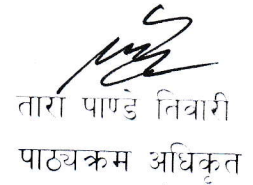 तारा पाण्डे तिवारी
पाठ्यक्रम अधिकृत